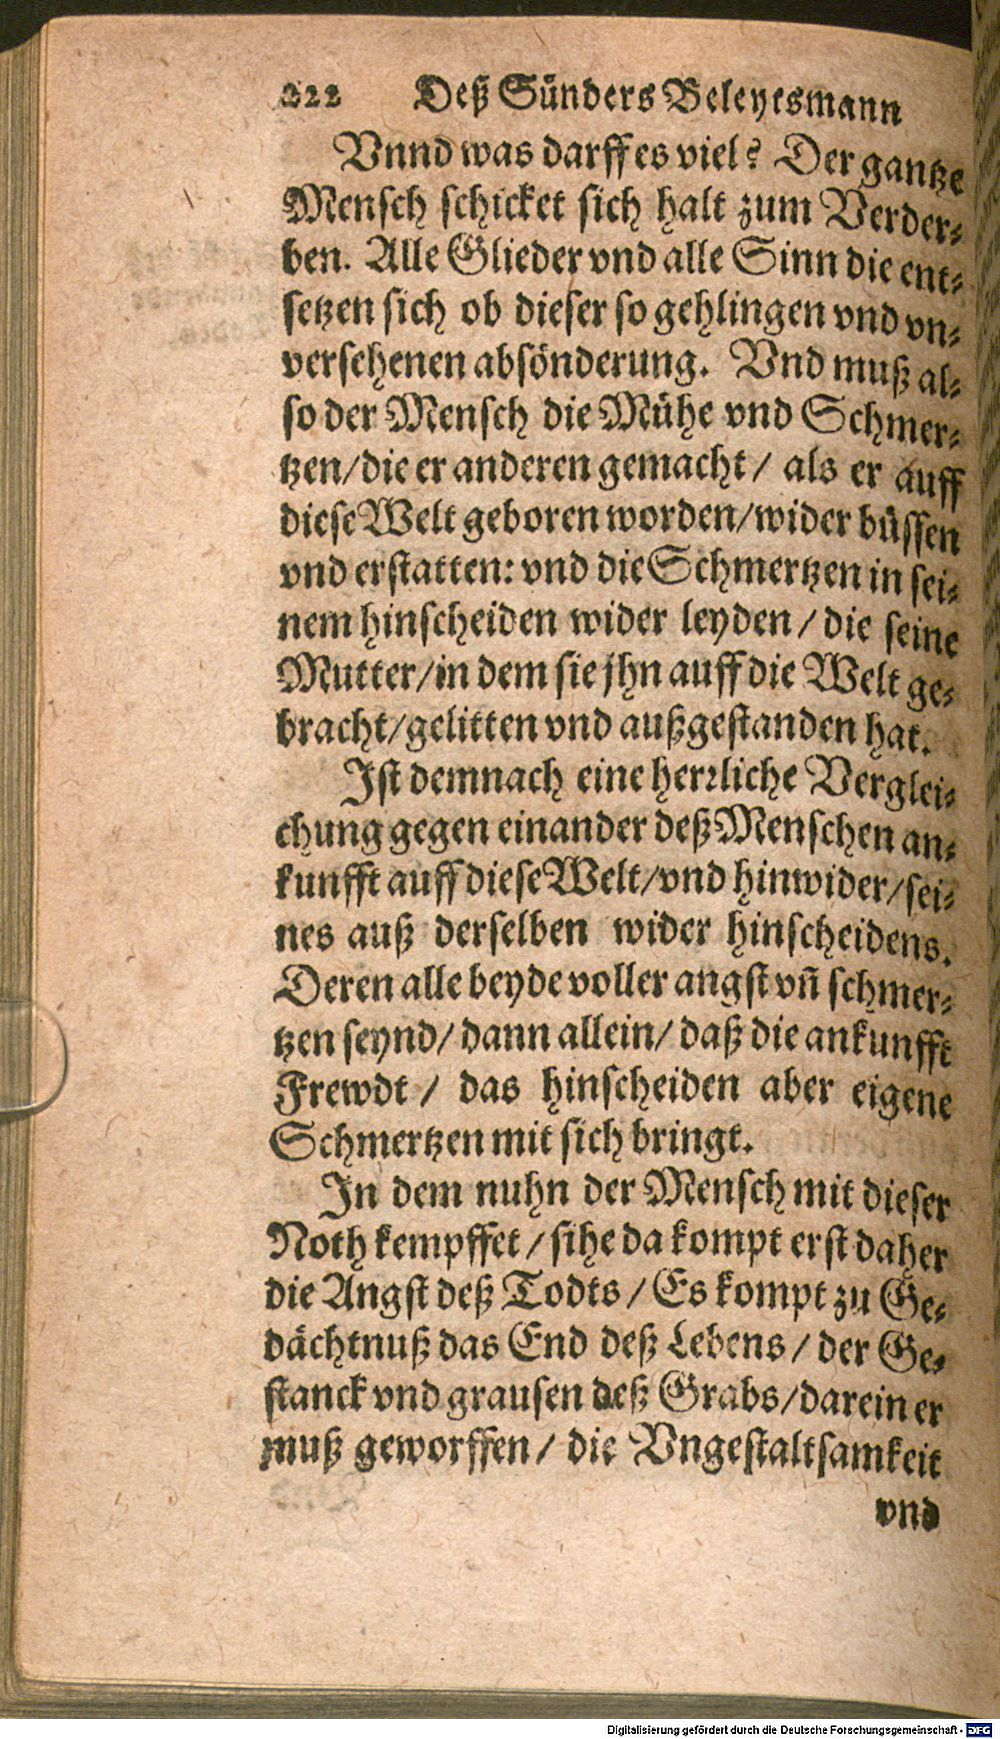 222 Deß Sünders Beleytsmann
Vnnd was darff es viel? Der gantze
Mensch schicket sich halt zum Verder-
ben. Alle Glieder vnd alle Sinn die ent-
setzen sich ob dieser so gehlingen vnd vn-
versehenen absönderung. Vnd muß al-
so der Mensch die Mühe vnd Schmer-
tzen/die er anderen gemacht/ als er auff
diese Welt geboren worden/wider büssen
vnd erstatten: vnd die Schmertzen in sei-
nem hinscheiden wider leyden/ die seine
Mutter/in dem sie jhn auff die Welt ge-
bracht/gelitten vnd außgestanden hat.
Ist demnach eine herrliche Verglei-
chung gegen einander deß Menschen an-
kunfft auff diese Welt/vnd hinwider/sei-
nes auß derselben wider hinscheidens.
Deren alle beyde voller angst vñ schmer-
tzen seynd/ dann allein/ daß die ankunfft
Frewdt/ das hinscheiden aber eigene
Schmertzen mit sich bringt.
In dem nuhn der Mensch mit dieser
Noth kempffet/ sihe da kompt erst daher
die Angst deß Todts/ Es kompt zu Ge-
dächtnuß das End deß Lebens/ der Ge-
stanck vnd grausen deß Grabs/darein er
muß geworffen/ die Vngestaltsamkeit
vnd
Digitalisierung gefördert durch die Deutsche Forschungsgemeinschaft - DFG